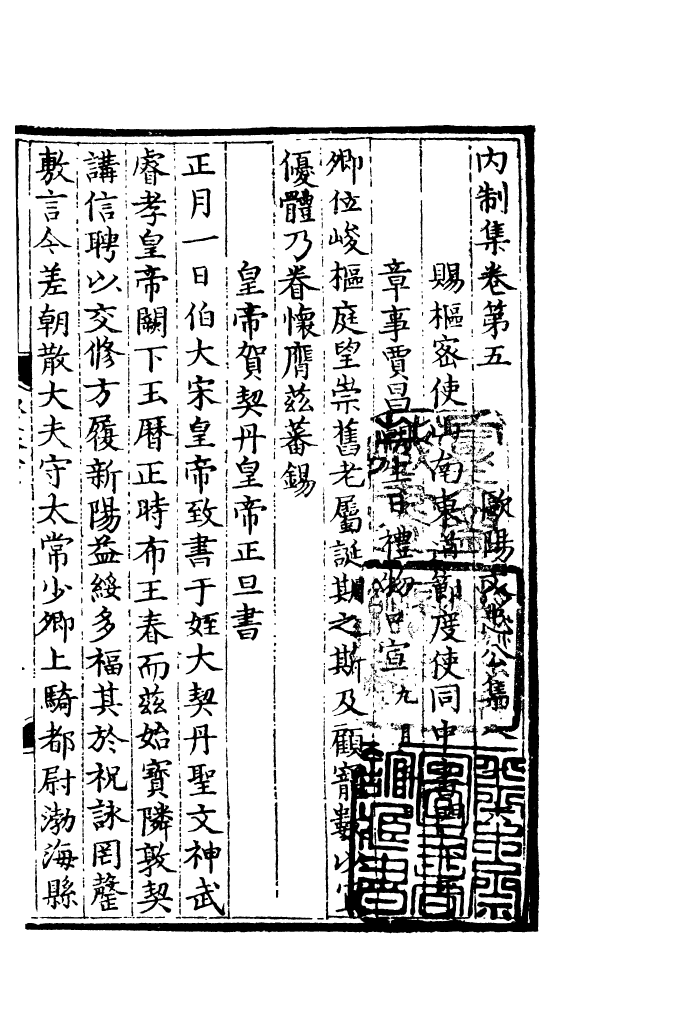 內制集卷第五　歐陽文忠公集八
賜樞密使山南東道節度使同中書門
章事賈昌朝生日禮物口宣九月
卿位峻樞庭望崇舊老屬誕期之斯及顧寵數以
優體乃眷懷膺茲蕃錫
皇帝賀契丹皇帝正旦書
正月一日伯大宋皇帝致書于姪大契丹聖文神武
睿孝皇帝闕下玉曆正時布王春而茲始寶隣敦契
講信聘以交修方履新陽益綏多福其於祝詠罔罄
敷言今差朝散大夫守太常少卿上騎都尉渤海縣